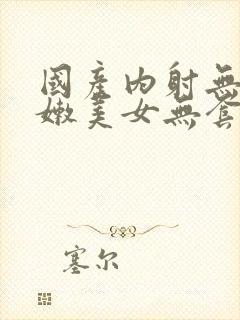 國產内射無
嫩美女無套
塞尔